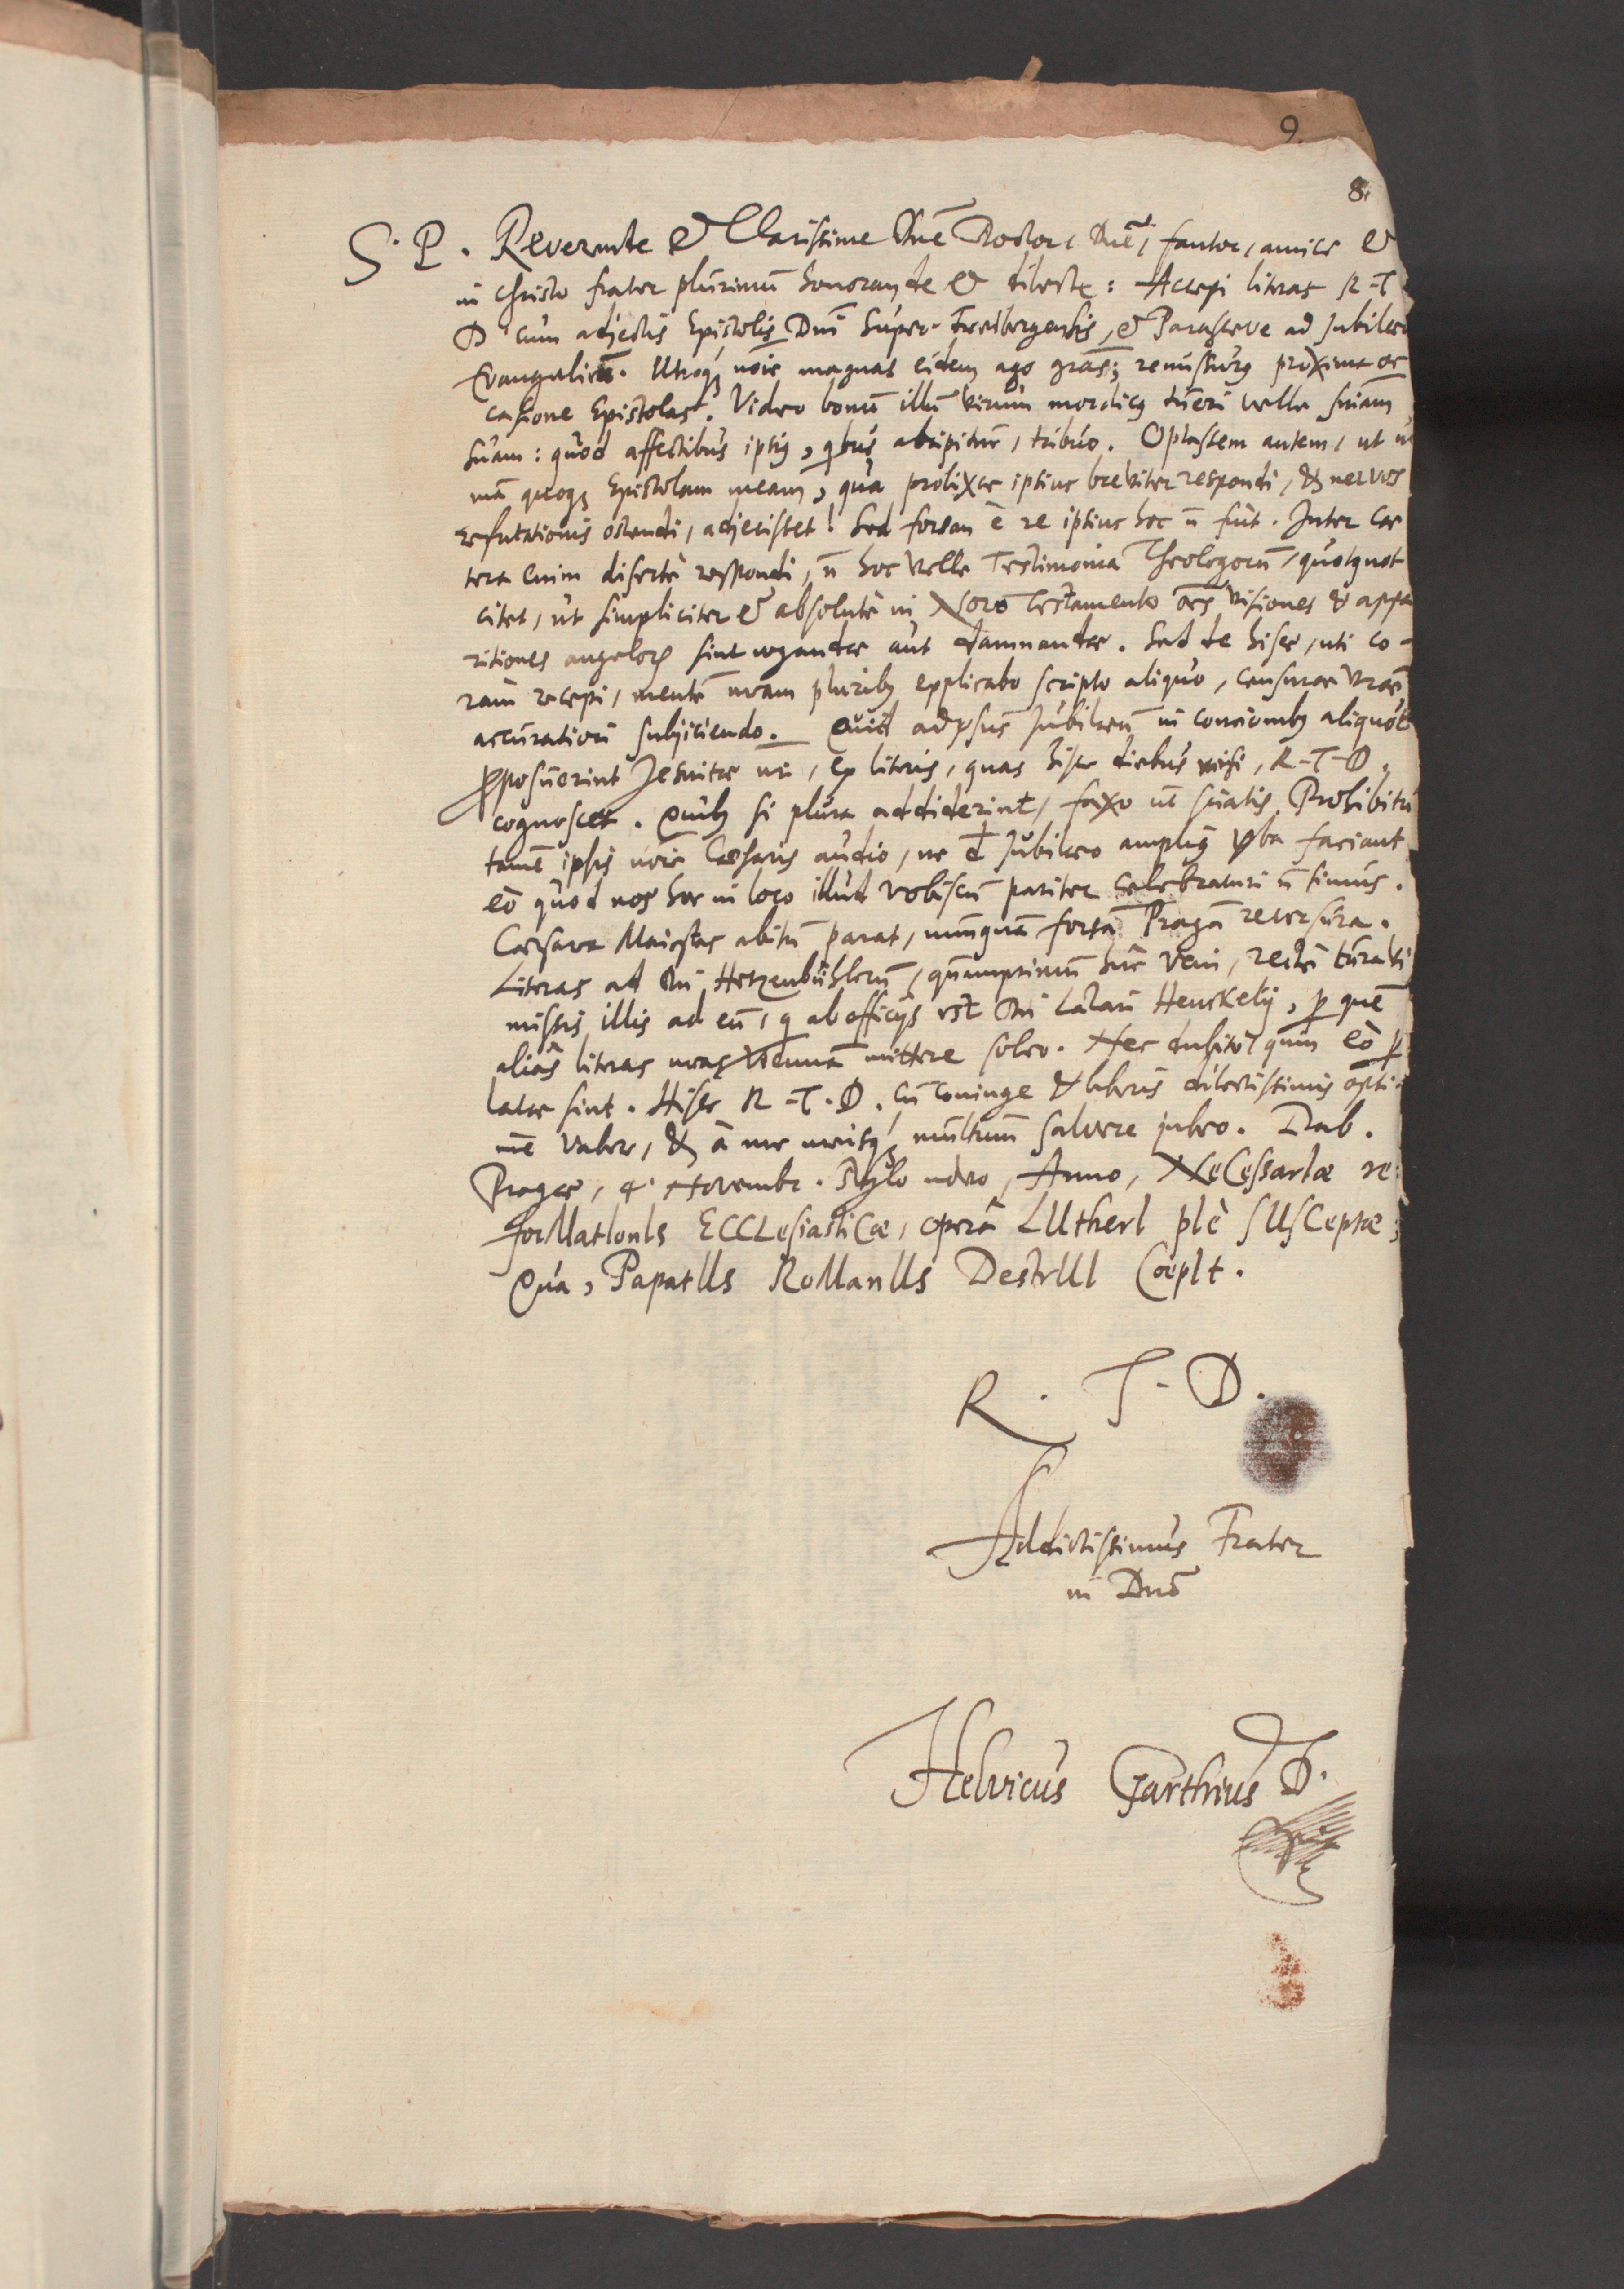 9.
8.
S. P. Reverende & Clarissime Dn̄e Doctor, Dn̄e, fautor, amice &
in Christo frater plurimū honorande & dilecte: Accepi literas R-T
D cum adjectis Epistolis Dn̄i Super. Freibergensis, & Parasceve ad Jubilæū
Evangelicū. Utroq; noīe magnas eidem ago grās; remissurꝰ proxima oc
casione Epistolas. Video bonū illū virum mordicꝰ tueri velle
suam: quod affectibus ipsiꝰ, qbus abripitur, tribuo. Optassem autem, ut
quoq; Epistolam meam, quâ prolixæ ipsius breviter respondi, & nervos
refutationis ostendi, adjecisset! Sed forsan è re ipsius hoc n̄ fuit. Inter cæ
tera enim disertè respondi, n̄ hoc velle Testimonia Theologorū, quotquot
citet, ut simpliciter & absolutè in Novo Testamento oēs visiones & appa
ritiones angeloꝝ sint negandæ aut damnandæ. Sed de hisce, uti co-
ram recepi, mentē meam pluribꝰ explicabo scripto aliquo, censuræ vræ
accuratiori subjiciendo. Quid adversus Jubilæū in concionibꝰ aliquot
proposuerint Jesuitæ nr̄i, ex literis, quas hisce diebus misi, R-T-D.
cognoscet. Quibꝰ si plura addiderint, faxo ut sciatis. Prohibitū
tamē ipsis noīe Cæsaris audio, ne đ Jubilæo ampliꝰ vba faciant
eò quod nos hoc in loco illud vobiscū pariter celebraturi n̄ simus.
Cæsarea Maiestas abitū parat, nunquā forsā Pragā reversura.
Literas ad Dn̄. Hetzenbühlerū, quamprimum huc veni, rectè curavi
missis illis ad eū, q ab officijs est Dn̄i Lazari Henckelij, p quē
aliàs literas meas Viennā mittere soleo. Nec dubito quin eò p
latæ sint. Hisce R-T-D. cū coniuge & liberis dilectissimis opti-
mè valere, & à me meisq; multum salvere jubeo. Dab.
Pragæ, 4. Novembr. Stylo novo, Anno, NeCessarIæ re-
forMatIonIs ECCLesiasticæ, operâ LUtherI pIè sUsCeptæ;
Quâ, PapatUs RoManUs DestrUI CoepIt.
R. T-D.
Addictissimus Frater
in Dn̄o
Helvicus Garthius D.